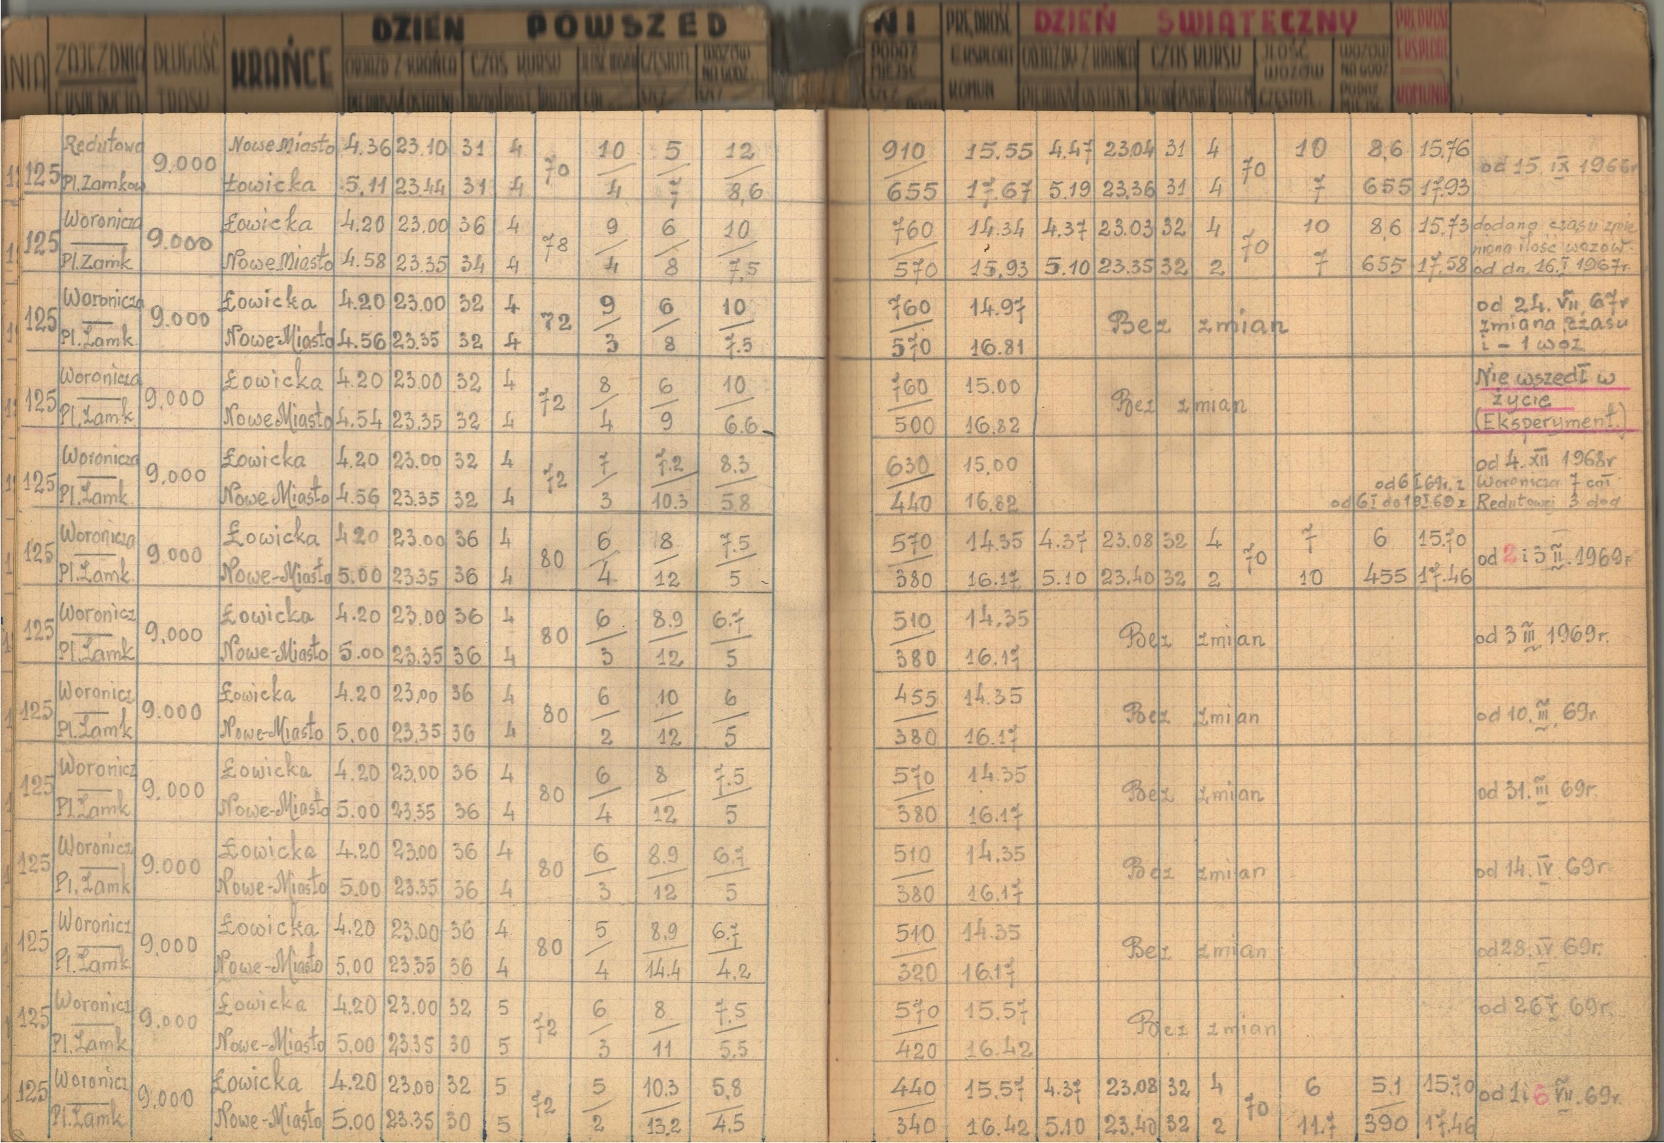 DZIEŃ POWSZED NI DZIEŃ ŚWIĄTECZNY
ZAJEZDNIA DŁUGOŚĆ KRAŃCE CZAS KURSU PRĘDKOŚĆ CZAS KURSU ILOŚĆ WOZÓW
TRASU KOMUN CZĘSTOTL.
125 Redutowa 9.000 Nowe Miasto 4.36 23.10 31 4 70 10 5 12 910 15.55 4.47 23.04 31 4 70 10 8,6 15.76 od 15. IX 1966r
Pl.Zamkow Łowicka 5.11 23.44 31 4 4 7 8,6 655 17.67 5.19 23,36 31 4 7 655 17.93
125 Woronicza 9.000 Łowicka 4.20 23.00 36 4 78 9 6 10 760 14.34 4.37 23.03 32 4 70 10 8,6 15,73 dodano czasu zmie
niona ilość wozów
Pl.Zamk Nowe Miasto 4.58 23.35 34 4 4 8 7,5 570 15,93 5.10 23.35 32 2 7 655 17,58 od dn. 16.I 1967r.
125 Woronicza 9.000 Łowicka 4.20 23.00 32 4 72 9 6 10 760 14.97 Bez zmian od 24. VII 67r
zmiana czasu
Pl.Zamk. Nowe-Miasto 4.56 23.35 32 4 3 8 7.5 570 16.81 i - 1 wóz
125 Woronicza 9.000 Łowicka 4.20 23.00 32 4 72 8 6 10 760 15.00 Bez zmian Nie wszedł w
życie
Pl.Zamk. Nowe Miasto 4.54 23.35 32 4 4 9 6.6 500 16.82 (Eksperyment.)
125 Woronicza 9,000 Łowicka 4.20 23.00 32 4 72 7 7.2 8.3 630 15,00 od 4. XII 1968r
od 6 I 69r. z Woronicza 7 cał
Pl.Zamk. Nowe Miasto 4.56 23.35 32 4 3 10.3 5.8 440 16,82 z Redutowej 3 dod
125 Woronicza 9.000 Łowicka 4.20 23.00 36 4 80 6 8 7.5 570 14.35 4.37 23.08 32 4 70 7 6 15.70 od 2 i 3 II. 1969r
Pl.Zamk. Nowe-Miasto 5.00 23.35 36 4 4 12 5 380 16.17 5.10 23.40 32 2 10 455 17.46
125 Woronicz 9.000 Łowicka 4.20 23.00 36 4 80 6 8.9 6.7 510 14.35 Bez zmian od 3 III 1969r.
Pl.Zamk Nowe-Miasto 5.00 23.35 36 4 3 12 5 380 16.17
125 Woronicz 9.000 Łowicka 4.20 23,00 36 4 80 6 10 6 455 14.35 Bez zmian od 10. III. 69r
Pl.Zamk Nowe-Miasto 5,00 23,35 36 4 2 12 5 380 16.17
125 Woronicz 9.000 Łowicka 4.20 23,00 36 4 80 6 8 7.5 570 14.35 Bez zmian od 31. III 69r.
Pl.Zamk Nowe-Miasto 5.00 23,35 36 4 4 12 5 380 16.17
125 Woronicz 9.000 Łowicka 4.20 23.00 36 4 80 6 8.9 6.7 510 14,35 Bez zmian od 14. IV. 69r
Pl.Zamk Nowe-Miasto 5.00 23.35 36 4 3 12 5 380 16.17
125 Woronicz 9,000 Łowicka 4.20 23.00 36 4 80 5 8,9 6.7 510 14.35 Bez zmian od 28. IV 69r.
Pl.Zamk Nowe-Miasto 5,00 23.35 36 4 4 14.4 4,2 320 16.17
125 Woronicz 9.000 Łowicka 4.20 23.00 32 5 72 6 8 7.5 570 15.57 Bez zmian od 26 V 69r.
Pl.Zamk Nowe-Miasto 5,00 23.35 30 5 3 11 5.5 420 16.42
125 Woronicz 9.000 Łowicka 4.20 23.00 32 5 72 5 10.3 5,8 440 15.57 4.37 23.08 32 4 70 6 5.1 15.70 od 1 i 6 VII. 69r.
Pl.Zamk. Nowe-Miasto 5.00 23.35 30 5 2 13,2 4.5 340 16.42 5.10 23.40 32 2 11.7 390 17.46